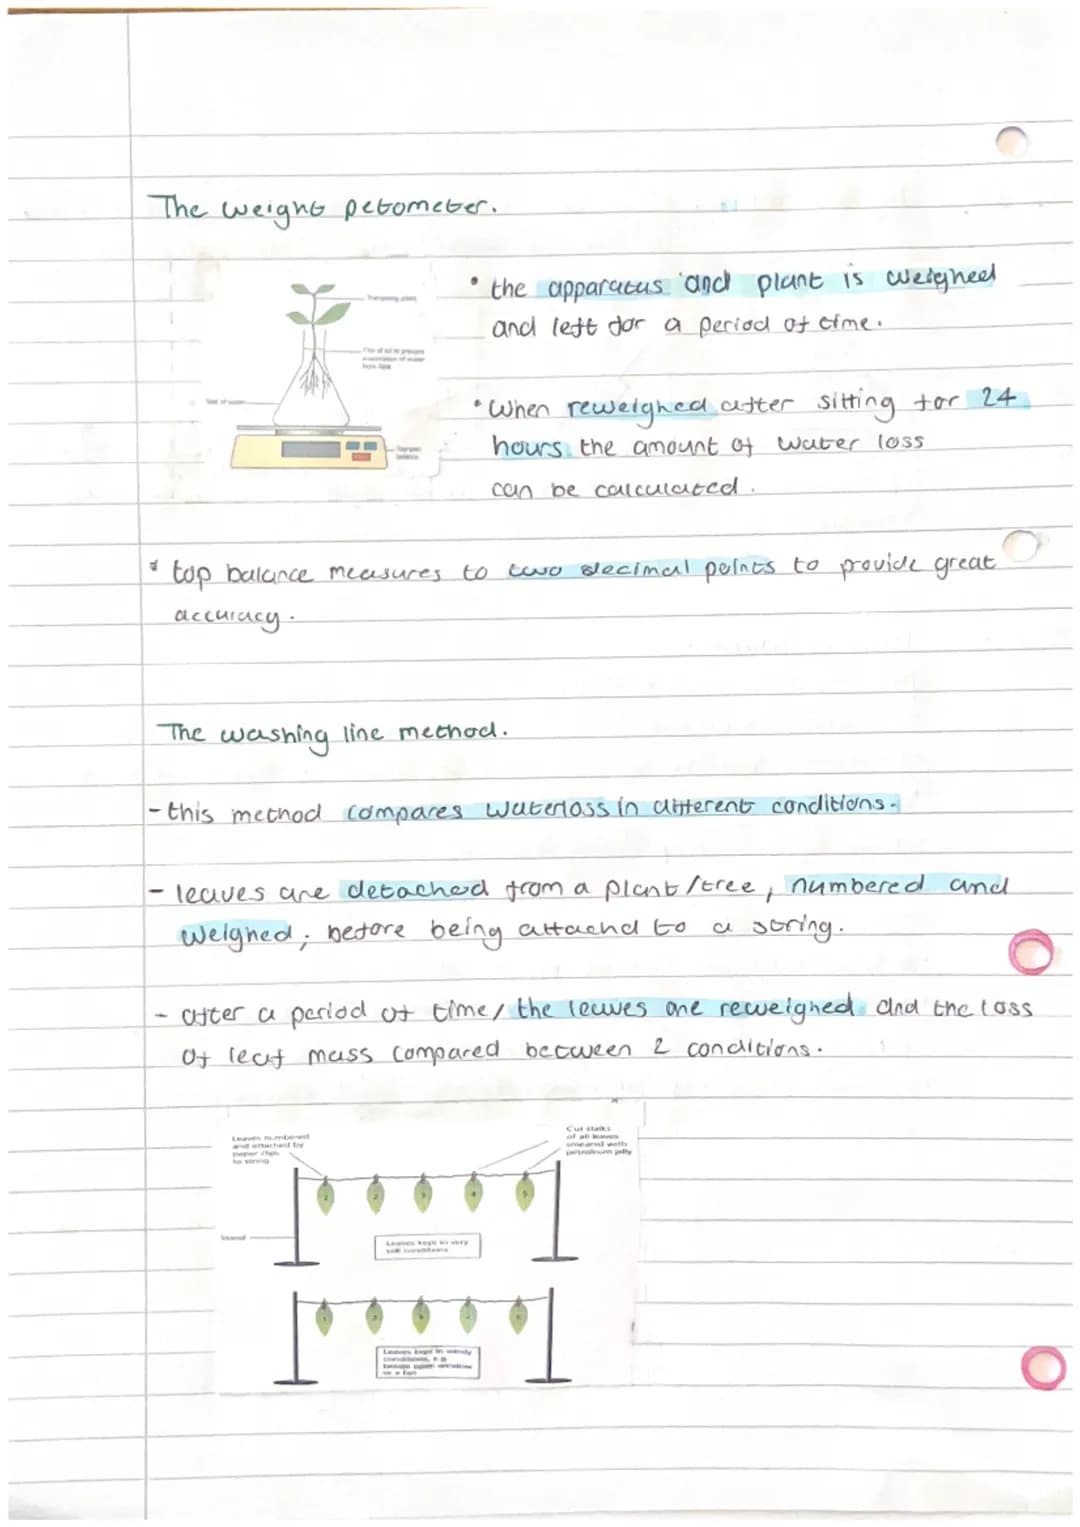 The weight petometer.
Transpiring plant
• the apparatus and plant is weighed
and left for a period of time.
Film of oil to prevent
evaporation of water
from flask
• When reweighed after sitting for 24
hours the amount of water loss
can be calculated.
• top balance measures to two decimal points to provide great
accuracy.
The washing line method.
- this method compares waterloss in different conditions.
- leaves are detached from a plant/tree, numbered and
weighed, before being attachd to a string.
- after a period of time, the leaves are reweighed and the loss
of leaf mass compared between 2 conditions.
Leaves numbered
and attached by
paper clips
to string
Cut stalks
of all leaves
smeared with
petroleum jelly
1 2 3 4 5
Stand
Leaves kept in very
still conditions
Leaves kept in windy
conditions, e.g.
beside open window
or a fan